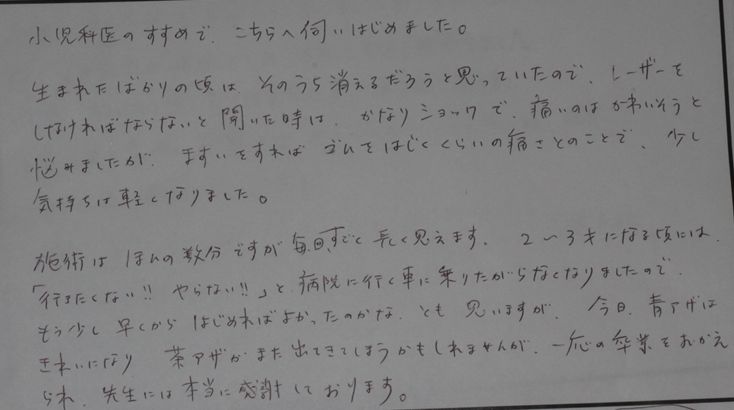 小児科医のすすめで、こちらへ伺いはじめました。
生まれたばかりの頃は、そのうち消えるだろうと思っていたので、レーザーを
しなければならないと聞いた時は、かなりショックで、痛いのはかわいそうと
悩みましたが、ますいをすればゴムをはじくくらいの痛さとのことで、少し
気持ちは軽くなりました。
施術はほんの数分ですが毎回すごく長く思えます。2〜3才になる頃には、
「行きたくない!!やらない!!」と、病院に行く車に乗りたがらなくなりましたので、
もう少し早くからはじめればよかったのかな、とも思いますが、今日、青アザは
きれいになり 茶アザがまた出てきてしまうかもしれませんが、一応の卒業をむかえ
られ、先生には本当に感謝しております。